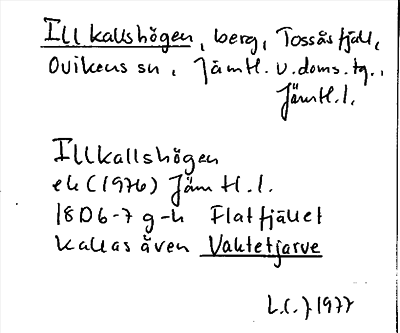 Illkallshögen, berg, Tossåsfjäll,
Ovikens sn, Jämtl. v. doms. tg.,
Jämtl. l.
Illkallshögen
ek (1976) Jämtl. l.
18D6-7 g-h Flatfjället
kallas även Vaktetjarve
1977